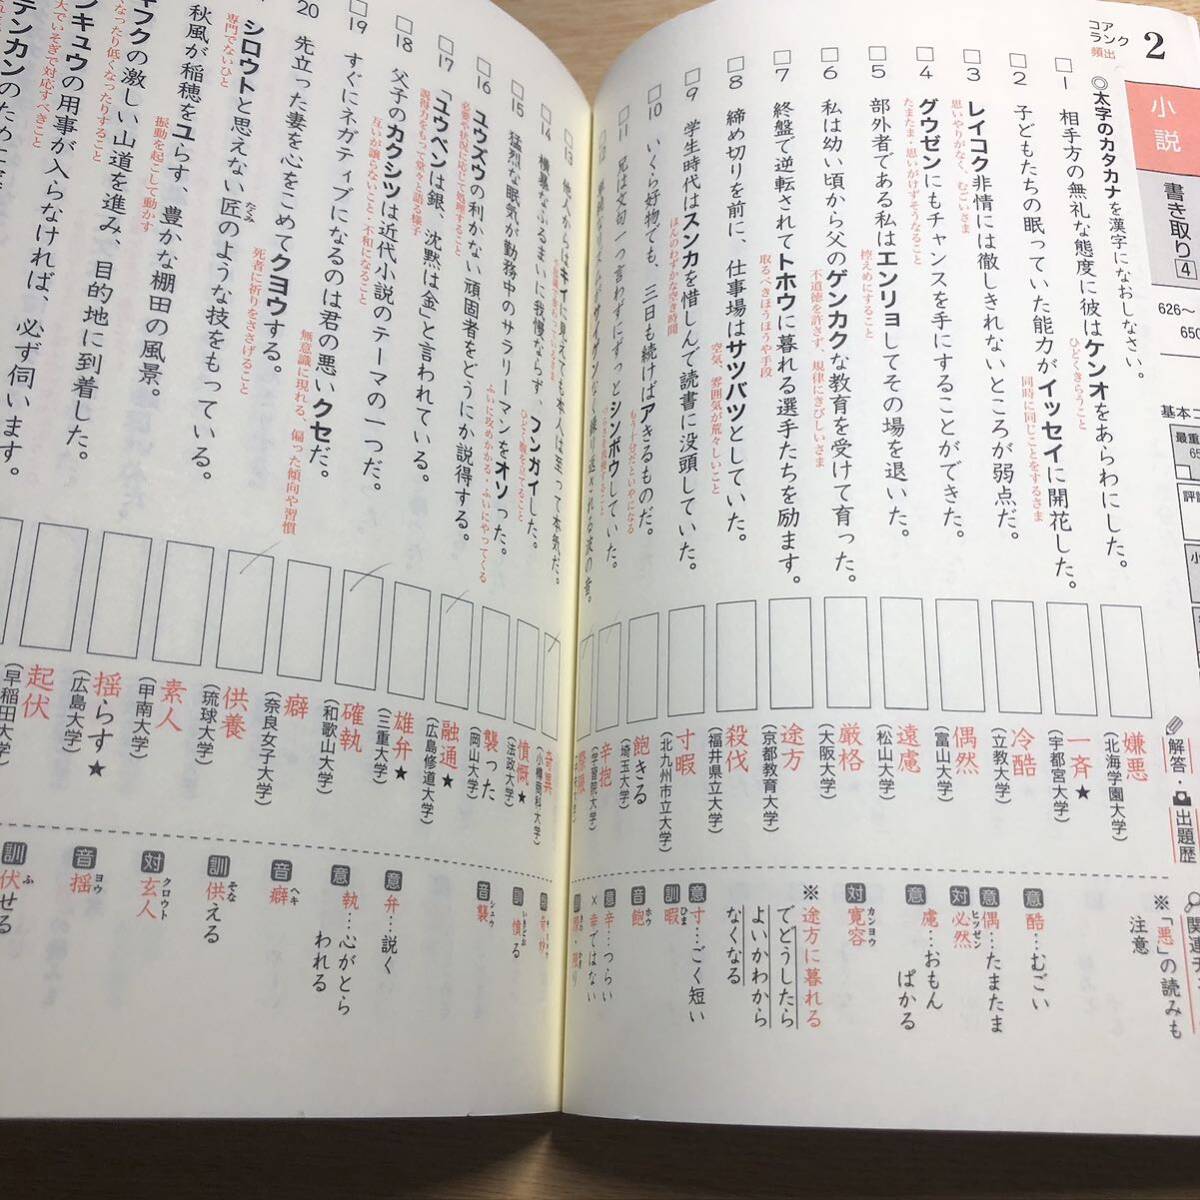 コア
ランク
頻出
2
小説
書き取り4
626〜
650
◎太字のカタカナを漢字になおしなさい。
1 相手方の無礼な態度に彼はケンオをあらわにした。
ひどくきらうこと
2 子どもたちの眠っていた能力がイッセイに開花した。
同時に同じことをするさま
3 レイコク非情には徹しきれないところが弱点だ。
思いやりがなく、むごいさま
4 グウゼンにもチャンスを手にすることができた。
たまたま・思いがけずそうなること
5 部外者である私はエンリョしてその場を退いた。
控えめにすること
6 私は幼い頃から父のゲンカクな教育を受けて育った。
不道徳を許さず、規律にきびしいさま
7 終盤で逆転されてトホウに暮れる選手たちを励ます。
取るべきほうほうや手段
8 締め切りを前に、仕事場はサツバツとしていた。
空気、雰囲気が荒々しいこと
9 学生時代はスンカを惜しんで読書に没頭していた。
ほんのわずかな空き時間
10 いくら好物でも、三日も続けばアきるものだ。
もう十分だといやになる
11 兄は文句一つ言わずにずっとシンボウしていた。
13 他人からはキイに見えても本人は至って本気だ。
14 横暴なふるまいに我慢ならず、フンガイした。
ひどく腹を立てること
15 猛烈な眠気が勤務中のサラリーマンをオソった。
ふいに攻めかかる・ふいにやってくる
16 ユウズウの利かない頑固者をどうにか説得する。
必要や状況に応じて処理すること
17 「ユウベンは銀、沈黙は金」と言われている。
説得力をもって堂々と語る様子
18 父子のカクシツは近代小説のテーマの一つだ。
互いが譲らないこと・不和になること
19 すぐにネガティブになるのは君の悪いクセだ。
無意識に現れる、偏った傾向や習慣
20 先立った妻を心をこめてクヨウする。
死者に祈りをささげること
シロウトと思えない匠のような技をもっている。
たくみ
専門でないひと
秋風が稲穂をユらす、豊かな棚田の風景。
振動を起こして動かす
キフクの激しい山道を進み、目的地に到着した。
なったり低くなったりすること
ンキュウの用事が入らなければ、必ず伺います。
大でいそぎで対応すべきこと
テンカンのため
解答・出題歴
嫌悪
(北海学園大学)
一斉★
(宇都宮大学)
冷酷
(立教大学)
偶然
(富山大学)
遠慮
(松山大学)
厳格
(大阪大学)
途方
(京都教育大学)
殺伐
(福井県立大学)
寸暇
(北九州市立大学)
飽きる
(埼玉大学)
辛抱
(学習院大学)
奇異
(小樽商科大学)
憤慨★
(法政大学)
襲った
(岡山大学)
融通★
(広島修道大学)
雄弁★
(三重大学)
確執
(和歌山大学)
癖
(奈良女子大学)
供養
(琉球大学)
素人
(甲南大学)
揺らす★
(広島大学)
起伏
(早稲田大学)
※「悪」の読みも
注意
意 酷…むごい
意 偶…たまたま
対 必然
ヒツゼン
意 慮…おもん
ぱかる
対 寛容
カンヨウ
※途方に暮れる
でどうしたら
よいかわから
なくなる
意 寸…ごく短い
訓 暇
ひま
音 飽
ホウ
意 辛…つらい
×幸ではない
訓 憤る
いきどお
音 襲
シュウ
意 弁…説く
意 執…心がとら
われる
音 癖
ヘキ
訓 供える
そな
対 玄人
クロウト
音 揺
ヨウ
訓 伏せる
ふ